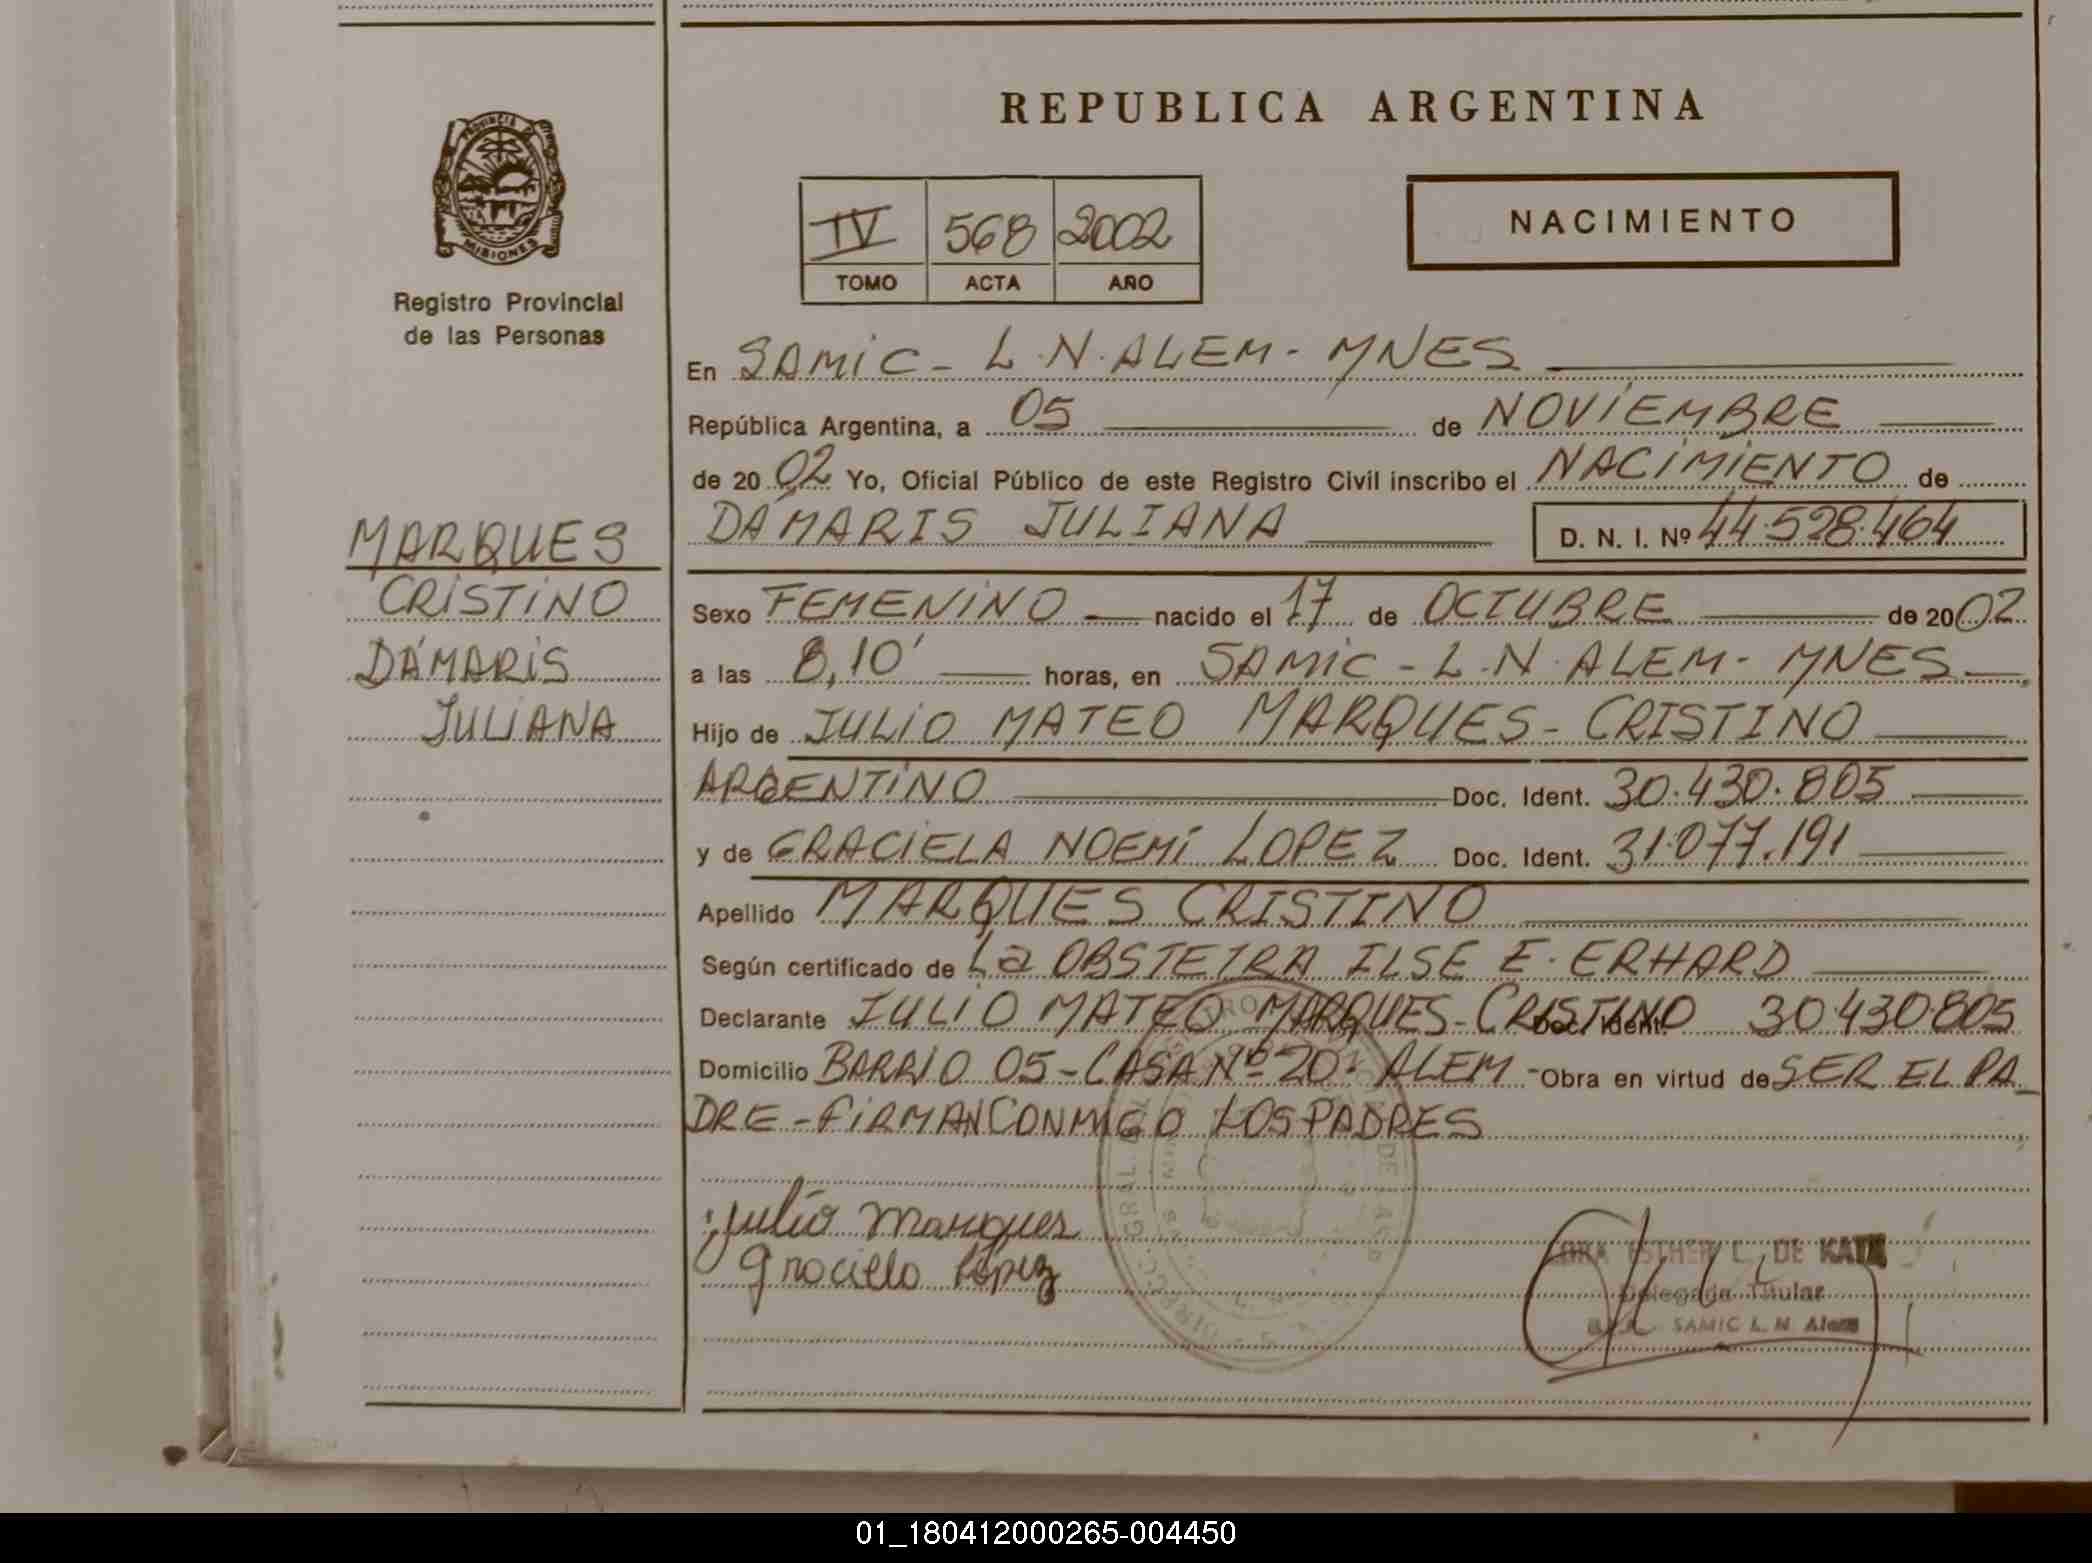 REPUBLICA ARGENTINA
PROVINCIA DE
MISIONES
Registro Provincial
de las Personas
IV 568 2002
TOMO ACTA AÑO
NACIMIENTO
En SAMIC - L.N.ALEM - MNES
República Argentina, a 05 de NOVIEMBRE
de 2002 Yo, Oficial Público de este Registro Civil inscribo el NACIMIENTO de
DÁMARIS JULIANA D. N. I. Nº 44.528.464
MARQUES
CRISTINO
DÁMARIS
JULIANA
Sexo FEMENINO nacido el 17 de OCTUBRE de 2002
a las 8,10' horas, en SAMIC - L.N. ALEM - MNES
Hijo de JULIO MATEO MARQUES - CRISTINO
ARGENTINO Doc. Ident. 30.430.805
y de GRACIELA NOEMÍ LOPEZ Doc. Ident. 31.077.191
Apellido MARQUES CRISTINO
Según certificado de La OBSTETRA ILSE E. ERHARD
Declarante JULIO MATEO MARQUES - CRISTINO Doc. Ident. 30.430.805
Domicilio BARRIO 05 - CASA Nº 20 - ALEM - Obra en virtud de SER EL PA
DRE - FIRMAN CONMIGO LOS PADRES
Julio Marques
Graciela López
ESTHER L. DE KATZ
Delegada Titular
SAMIC L. N. Alem
01_180412000265-004450